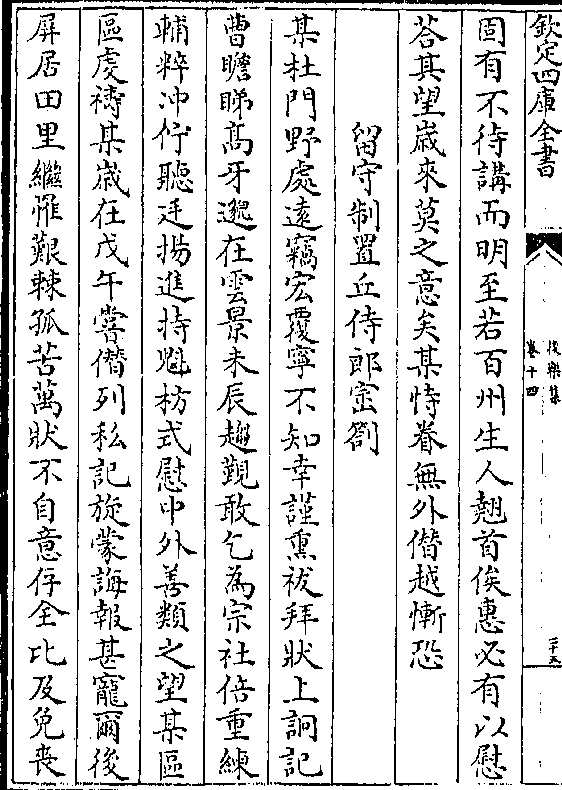 欽定四庫全書
後樂集
卷十四
二十五
固有不待講而明至若百州生人翹首俟惠必有以慰
荅其望嵗來莫之意矣某恃眷無外僭越慚恐
留守制置丘侍郎宻劄
某杜門野處遠竊宏覆寧不知幸謹熏袚拜狀上詷記
曹瞻睇髙牙邈在雲景未辰趨覲敢乞為宗社倍重練
輔粹冲佇聽廷揚進持魁枋式慰中外善類之望某區
區䖍禱某嵗在戊午嘗僭列私記旋蒙誨報甚寵爾後
屏居田里繼罹艱棘孤苦萬狀不自意存全比及免喪